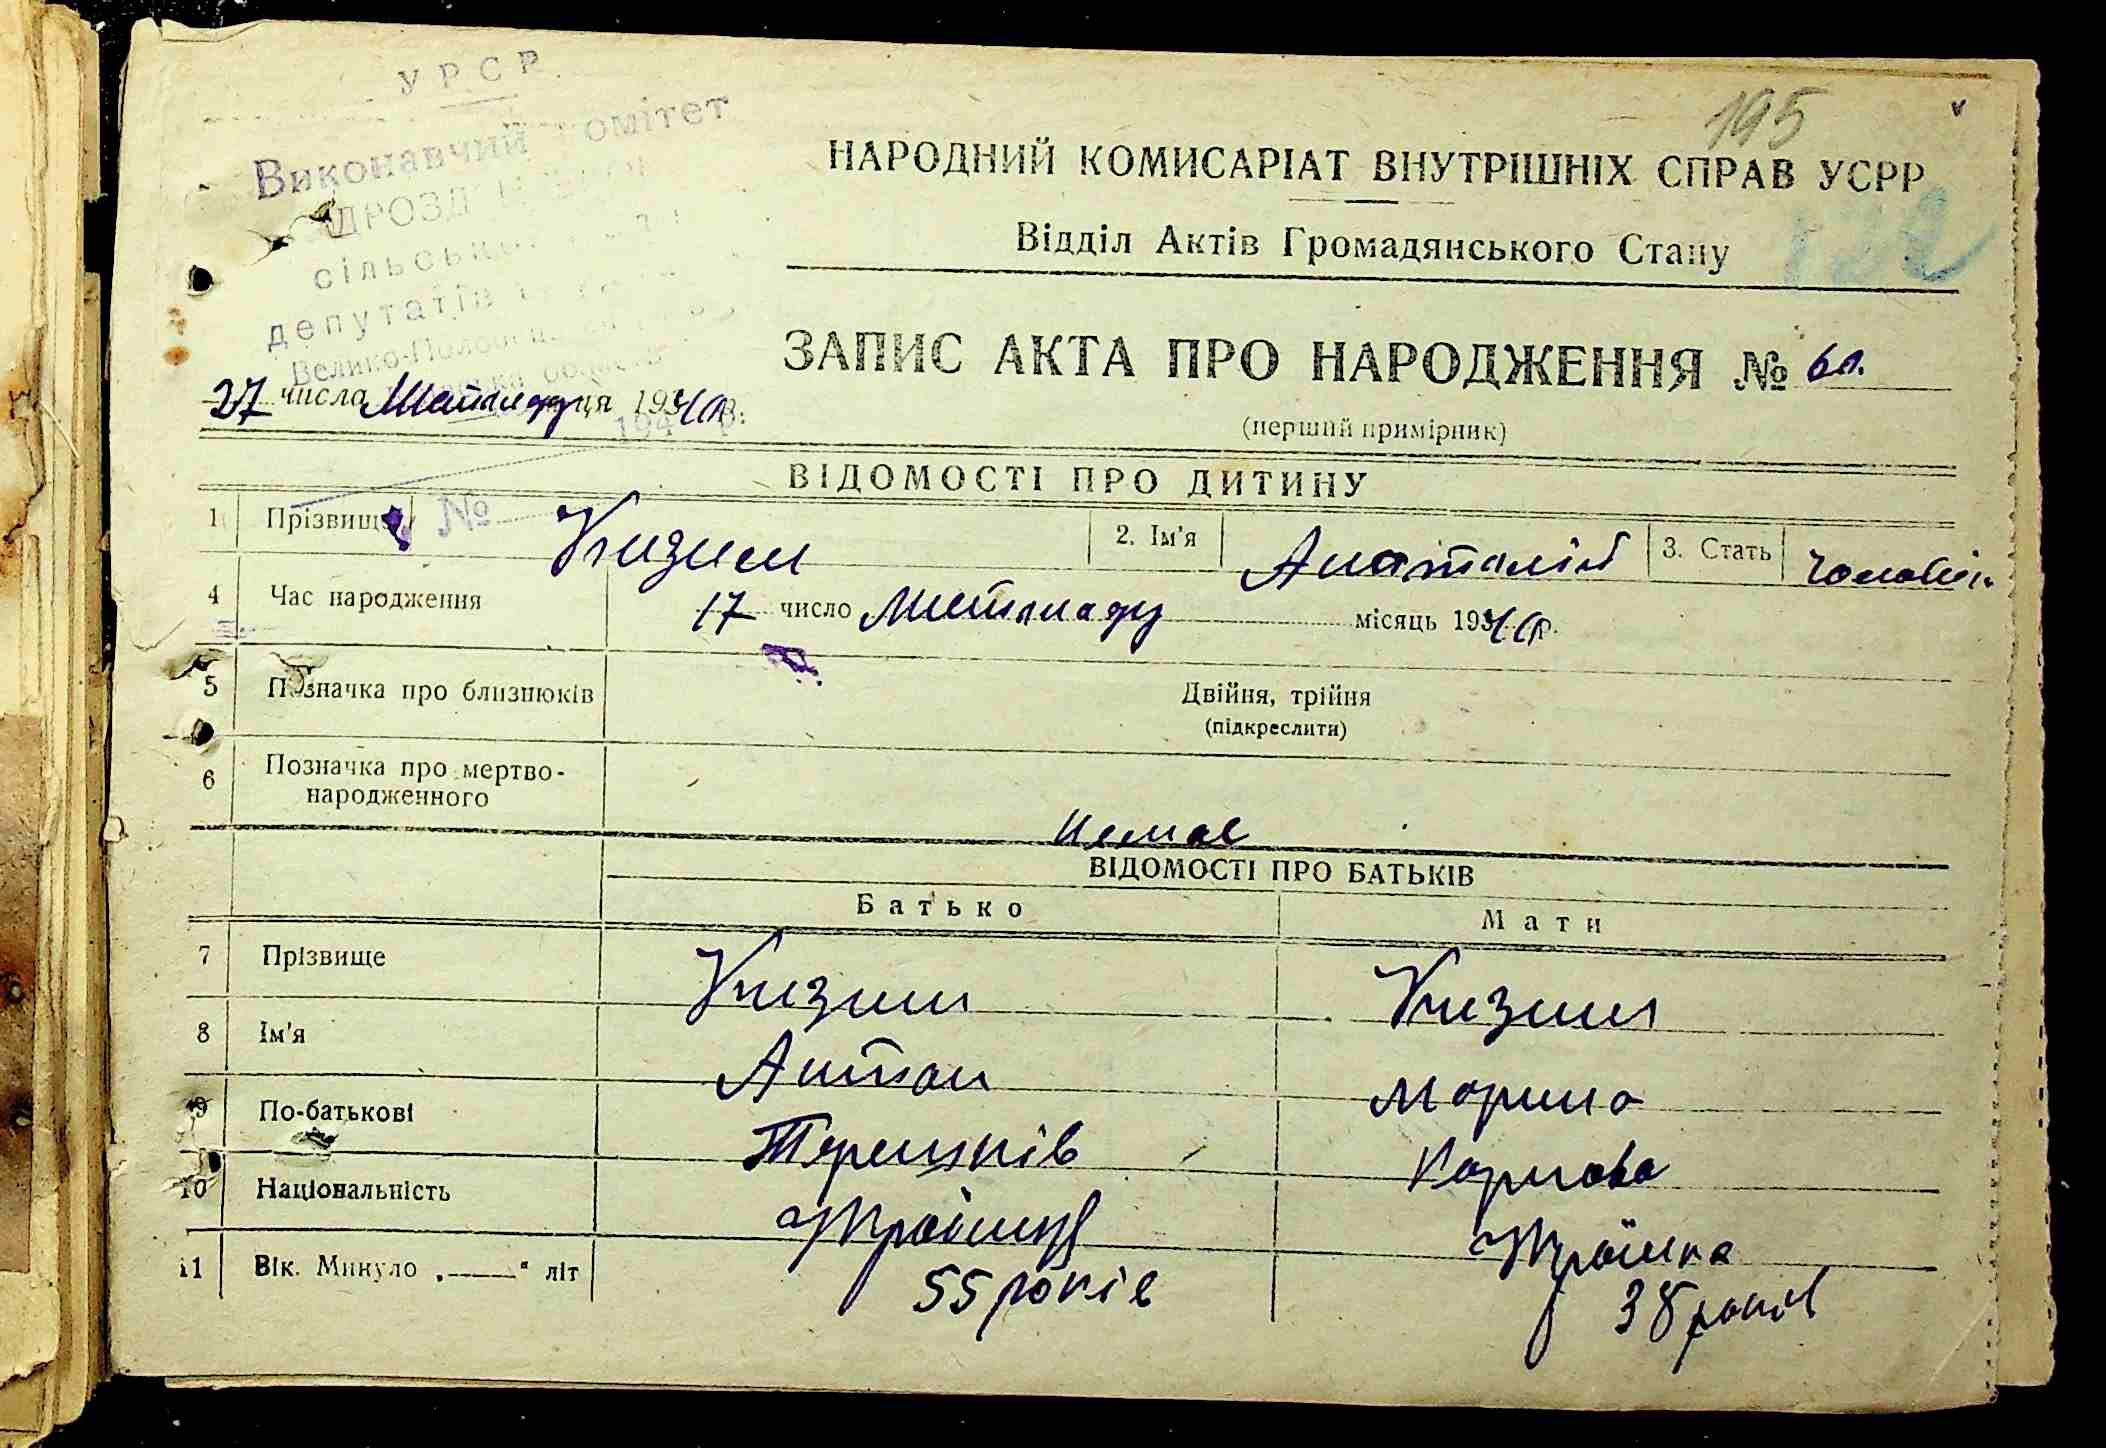 УРСР
Виконавчий комітет
ДРОЗД
сільсько
депутатів
Велико-Полов
195
v
НАРОДНИЙ КОМИСАРІАТ ВНУТРІШНІХ СПРАВ УСРР
Відділ Актів Громадянського Стану
ЗАПИС АКТА ПРО НАРОДЖЕННЯ №
(перший примірник)
27 числа Листопаду ця 1940 р.
194 р.
ВІДОМОСТІ ПРО ДИТИНУ
1 Прізвище № Кизим 2. Ім'я Анатолій 3. Стать Чоловіч.
4 Час народження 17 число Листопаду місяць 1940 р.
5 Позначка про близнюків Двійня, трійня
(підкреслити)
6 Позначка про мертво-
народженного
Немає
ВІДОМОСТІ ПРО БАТЬКІВ
Батько Мати
7 Прізвище Кизим Кизим
8 Ім'я Антон Марина
9 По-батькові Терешків Карпова
10 Національність Українець Українка
11 Вік. Минуло „——“ літ 55 років 38 років